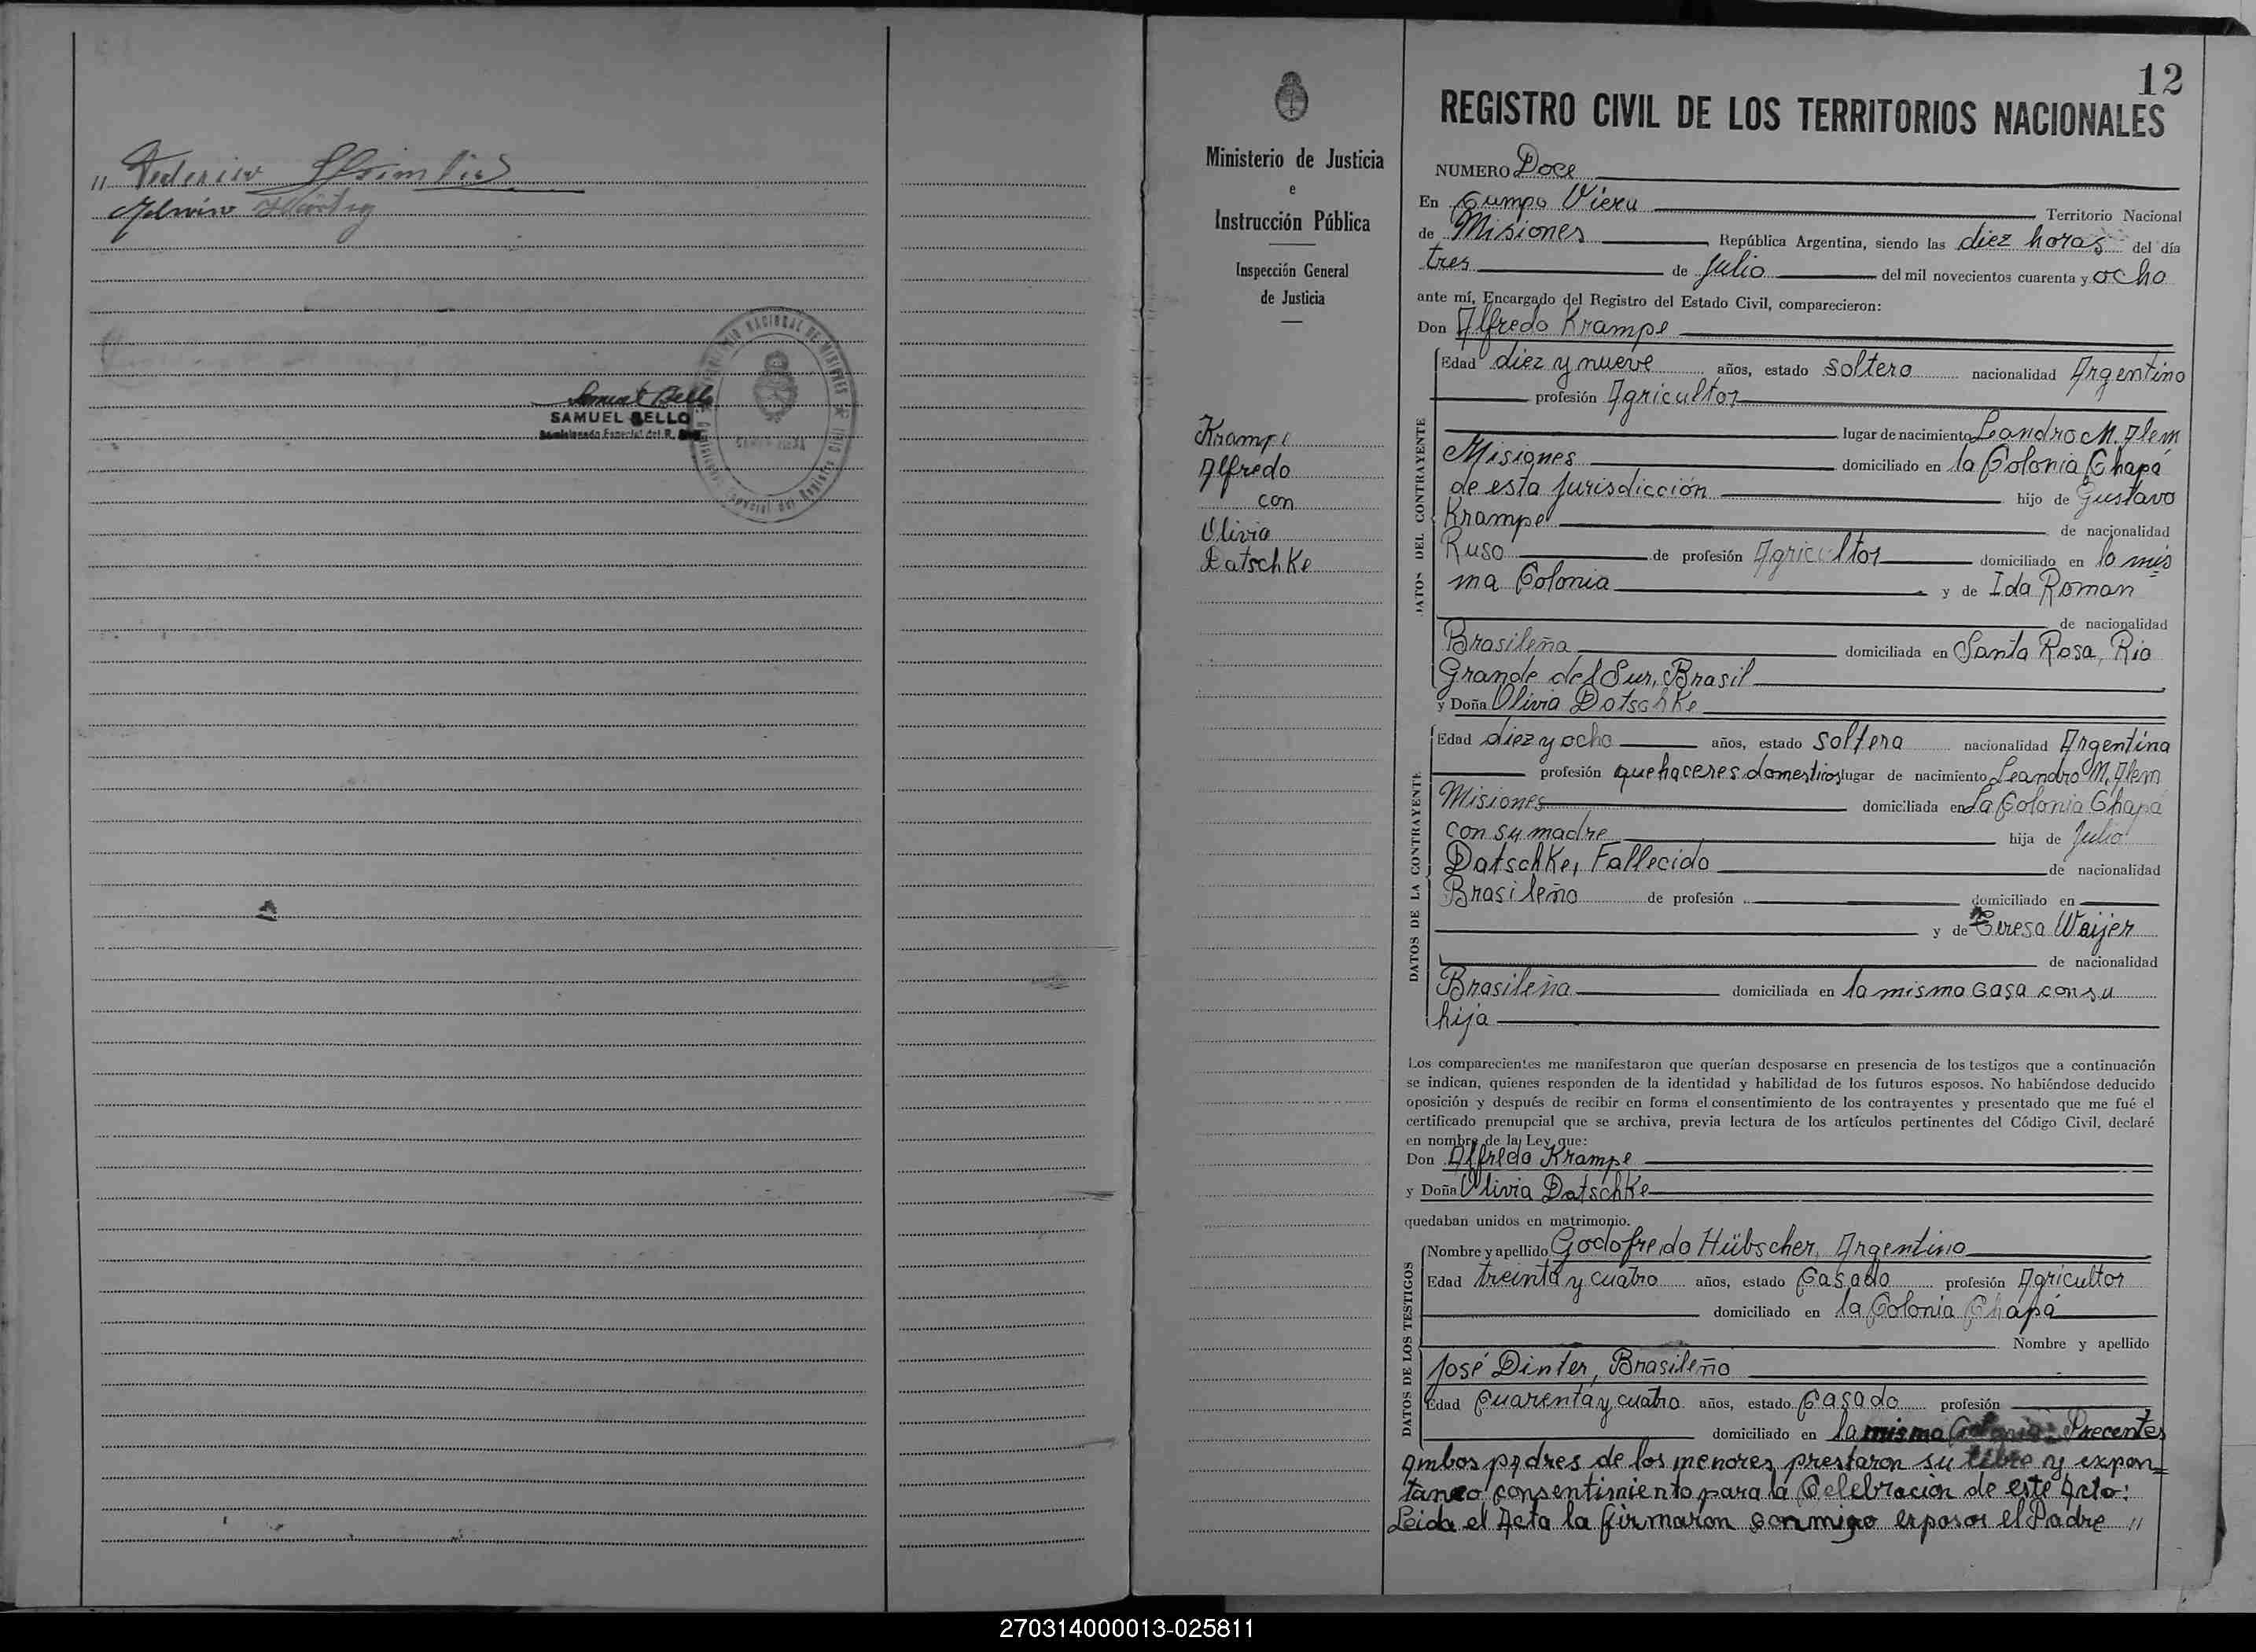 " Federico
Samuel Bello
SAMUEL BELLO
Comisionado Especial del R.
12
Ministerio de Justicia
e
Instrucción Pública
Inspección General
de Justicia
Krampe
Alfredo
con
Olivia
Datschke
REGISTRO CIVIL DE LOS TERRITORIOS NACIONALES
NUMERO Doce
En Campo Viera Territorio Nacional
de Misiones República Argentina, siendo las diez horas del día
tres de Julio del mil novecientos cuarenta y ocho
ante mí, Encargado del Registro del Estado Civil, comparecieron:
Don Alfredo Krampe
DATOS DEL CONTRAYENTE
Edad diez y nueve años, estado soltero nacionalidad Argentino
profesión Agricultor
lugar de nacimiento Leandro M. Alem
Misiones domiciliado en la Colonia Chapá
de esta Jurisdicción hijo de Gustavo
Krampe de nacionalidad
Ruso de profesión Agricultor domiciliado en la mis
ma Colonia y de Ida Roman
de nacionalidad
Brasileña domiciliada en Santa Rosa, Rio
Grande del Sur, Brasil
y Doña Olivia Datschke
DATOS DE LA CONTRAYENTE
Edad diez y ocho años, estado soltera nacionalidad Argentina
profesión quehaceres domesticos lugar de nacimiento Leandro M. Alem
Misiones domiciliada en La Colonia Chapá
con su madre hija de Julio
Datschke, Fallecido de nacionalidad
Brasileño de profesión domiciliado en
y de Teresa Waijer
de nacionalidad
Brasileña domiciliada en la misma casa con su
hija
Los comparecientes me manifestaron que querían desposarse en presencia de los testigos que a continuación
se indican, quienes responden de la identidad y habilidad de los futuros esposos. No habiéndose deducido
oposición y después de recibir en forma el consentimiento de los contrayentes y presentado que me fué el
certificado prenupcial que se archiva, previa lectura de los artículos pertinentes del Código Civil, declaré
en nombre de la Ley que:
Don Alfredo Krampe
y Doña Olivia Datschke
quedaban unidos en matrimonio.
DATOS DE LOS TESTIGOS
Nombre y apellido Godofredo Hübscher, Argentino
Edad treinta y cuatro años, estado Casado profesión Agricultor
domiciliado en la Colonia Chapá
Nombre y apellido
José Dinter, Brasileño
Edad Cuarenta y cuatro años, estado Casado profesión
domiciliado en la misma Colonia. Precentes
ambos padres de los menores prestaron su libre y expon=
taneo consentimiento para la Celebracion de este Acto:
Leida el Acta la firmaron conmigo esposos el Padre "
270314000013-025811